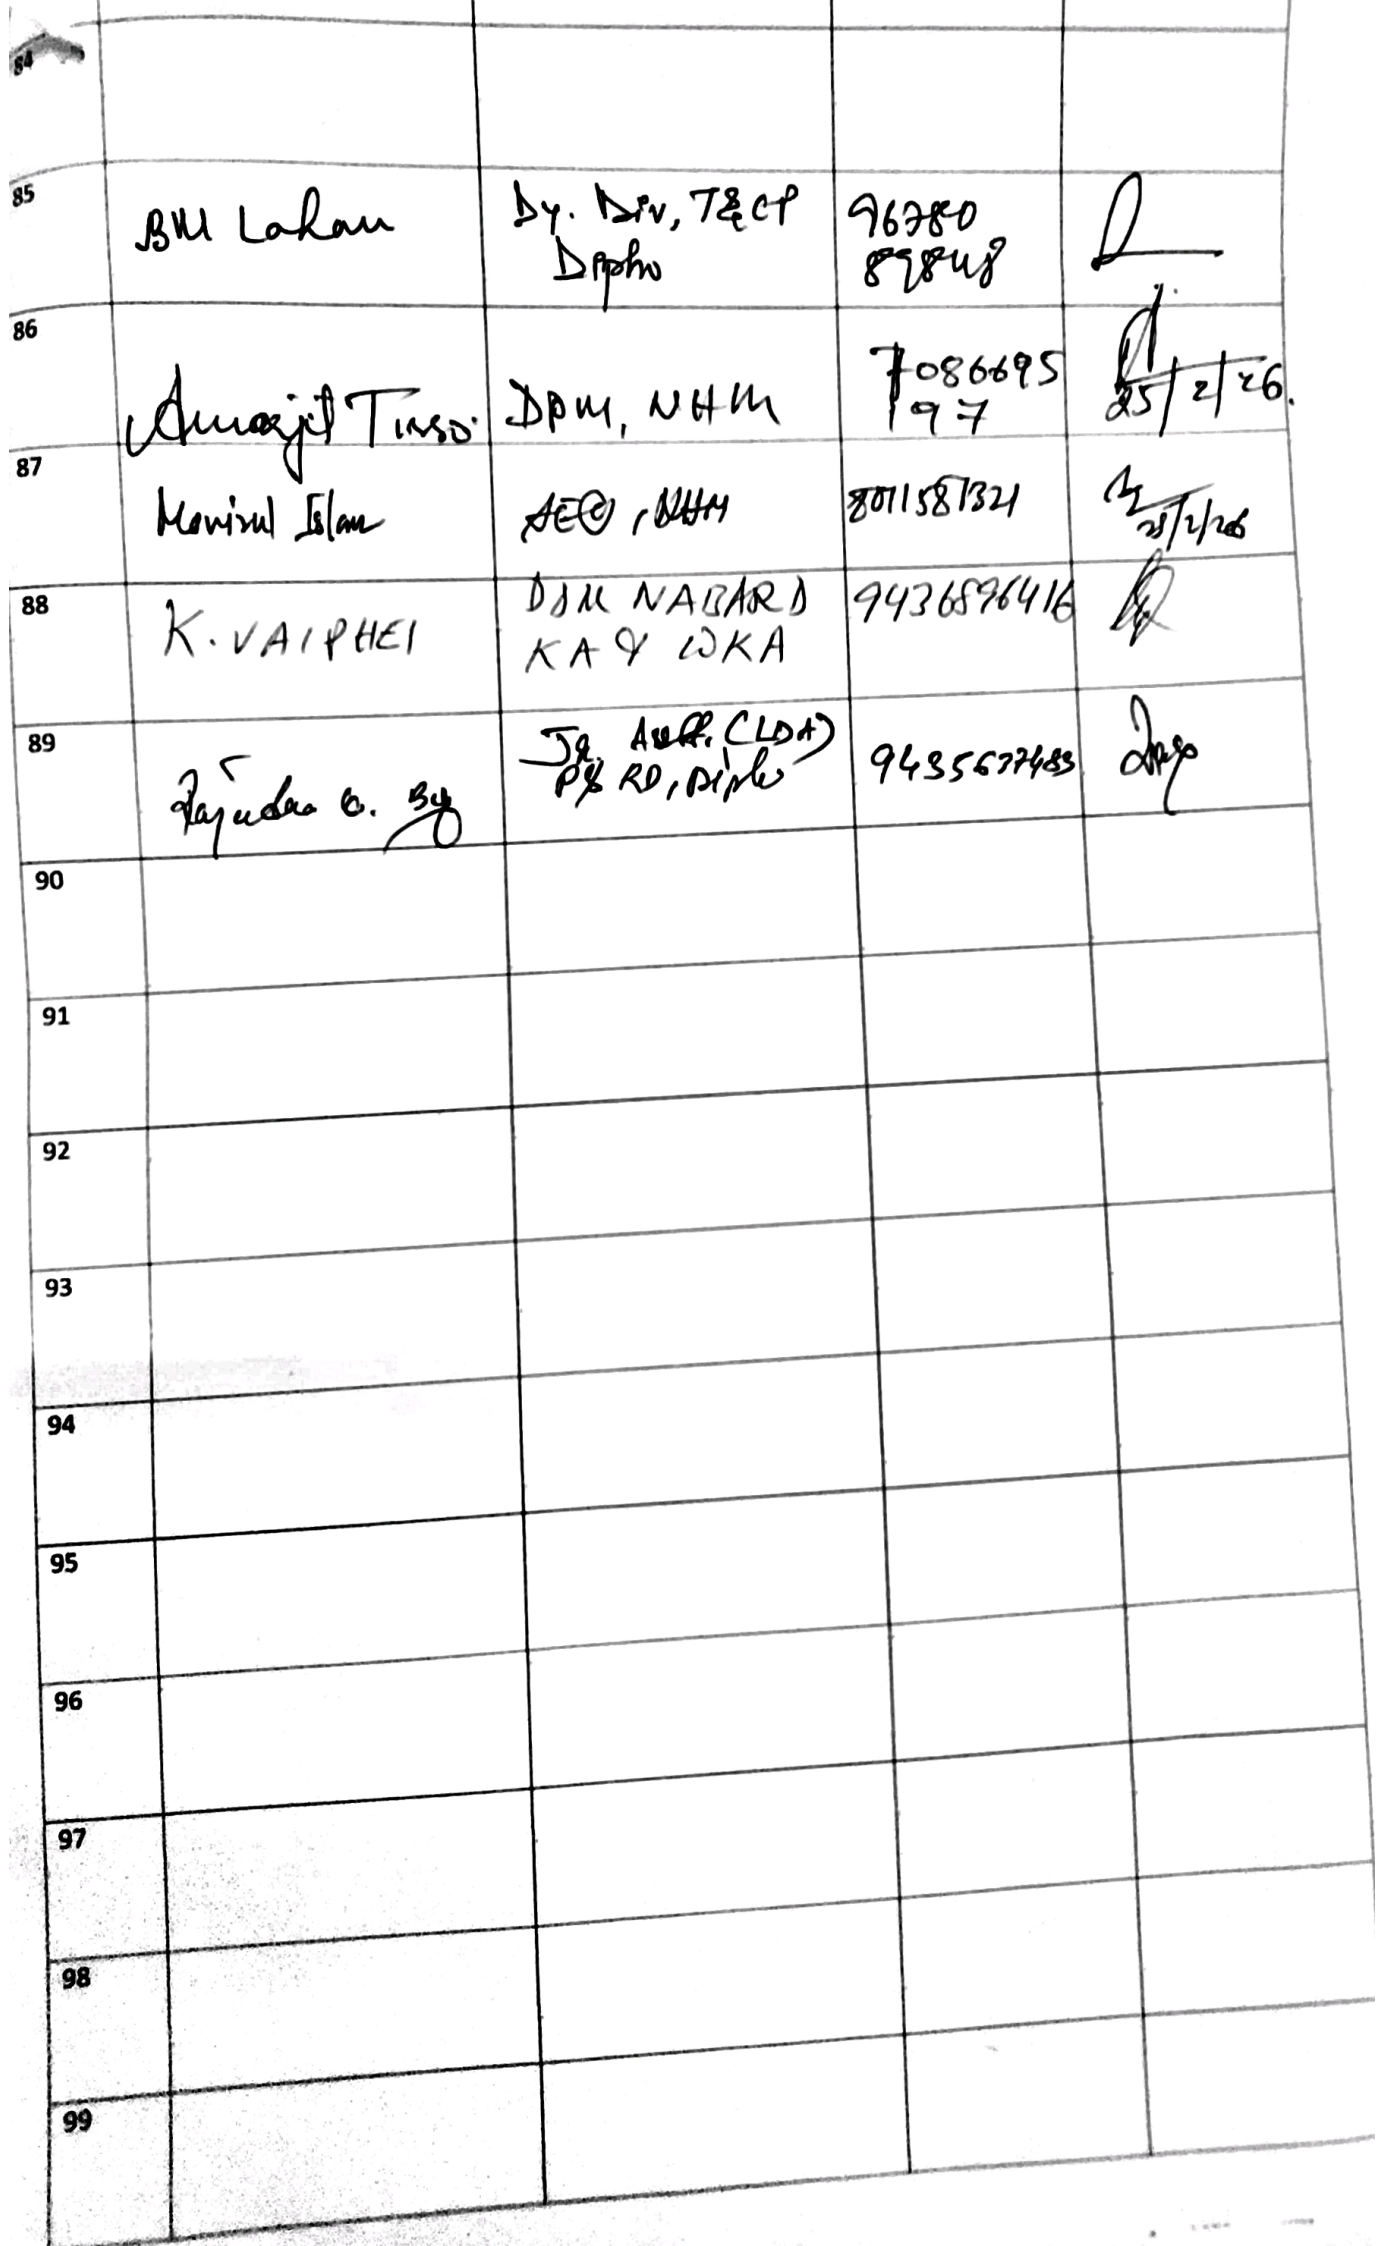 84
85
BM Lahan
Dy. Dir, T&CP
Diphu
96780
89848
86
Amarjit Tisso.
DPM, NHM
7086695
197
25/2/26.
87
Monirul Islam
, NHM
8011581321
25/2/26
88
K. VAIPHEI
DDM NABARD
KA & WKA
9436896416
89
Jr. Asstt. (LDA)
P& RD, Diphu
9435677483
90
91
92
93
94
95
96
97
98
99